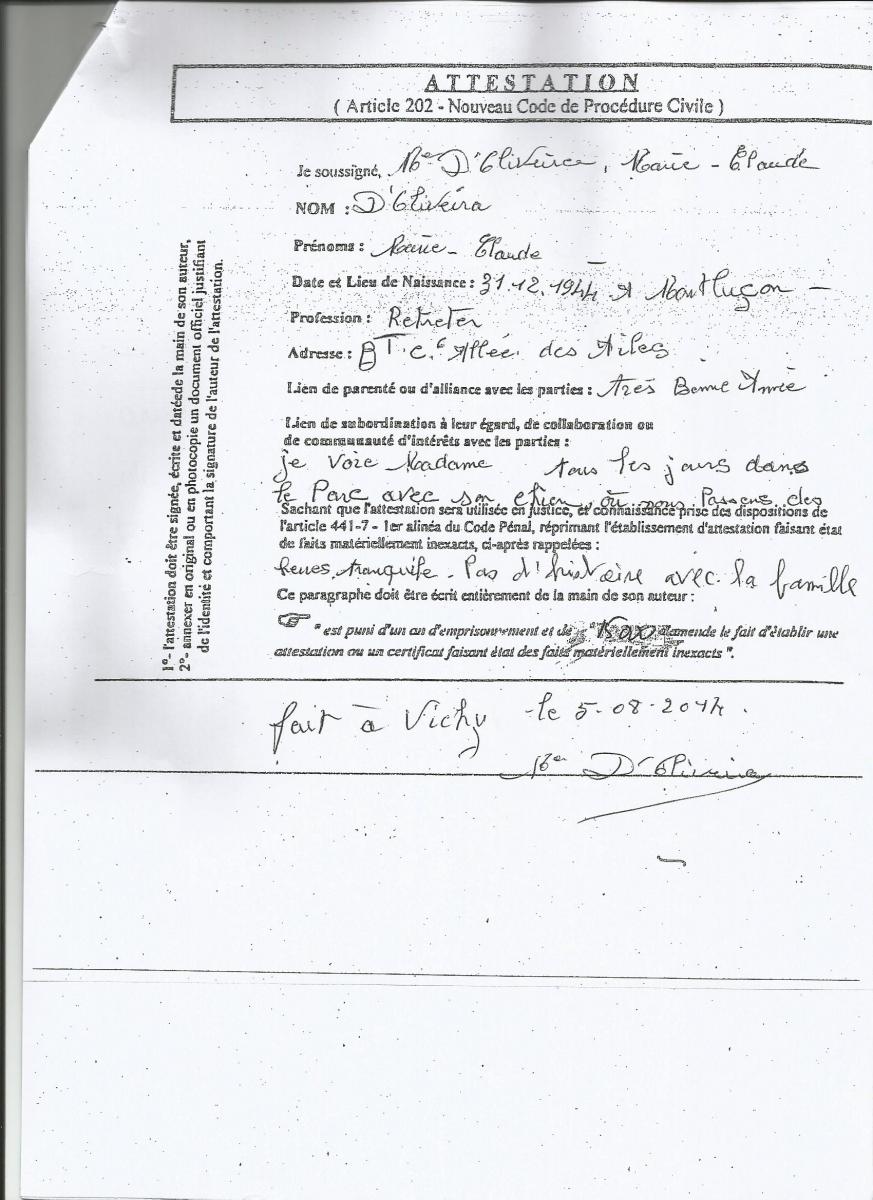 ATTESTATION
( Article 202 - Nouveau Code de Procédure Civile )
Je soussigné, Me D'Oliveira, Marie - Claude
NOM : D'Oliveira
Prénoms : Marie - Claude
Date et Lieu de Naissance : 31.12.1944 A Montluçon -
Profession : Retreter
Adresse : BT. C. 6 Allée des Ailes
Lien de parenté ou d'alliance avec les parties : Très Bonne Amie
Lien de subordination à leur égard, de collaboration ou
de communauté d'intérêts avec les parties :
je Voie Madame tous les jours dans
le Parc avec son chien, où nous Passons des
Sachant que l'attestation sera utilisée en justice, et connaissance prise des dispositions de
l'article 441-7 - 1er alinéa du Code Pénal, réprimant l'établissement d'attestation faisant état
de faits matériellement inexacts, ci-après rappelées :
heures tranquile. Pas d'histoire avec la famille
Ce paragraphe doit être écrit entièrement de la main de son auteur :
" est puni d'un an d'emprisonnement et de 15000 d'amende le fait d'établir une
attestation ou un certificat faisant état des faits matériellement inexacts ".
fait à Vichy le 5-08-2014.
Me D'Oliveira
1°- l'attestation doit être signée, écrite et datéede la main de son auteur,
2°- annexer en original ou en photocopie un document officiel justifiant
de l'identité et comportant la signature de l'auteur de l'attestation.